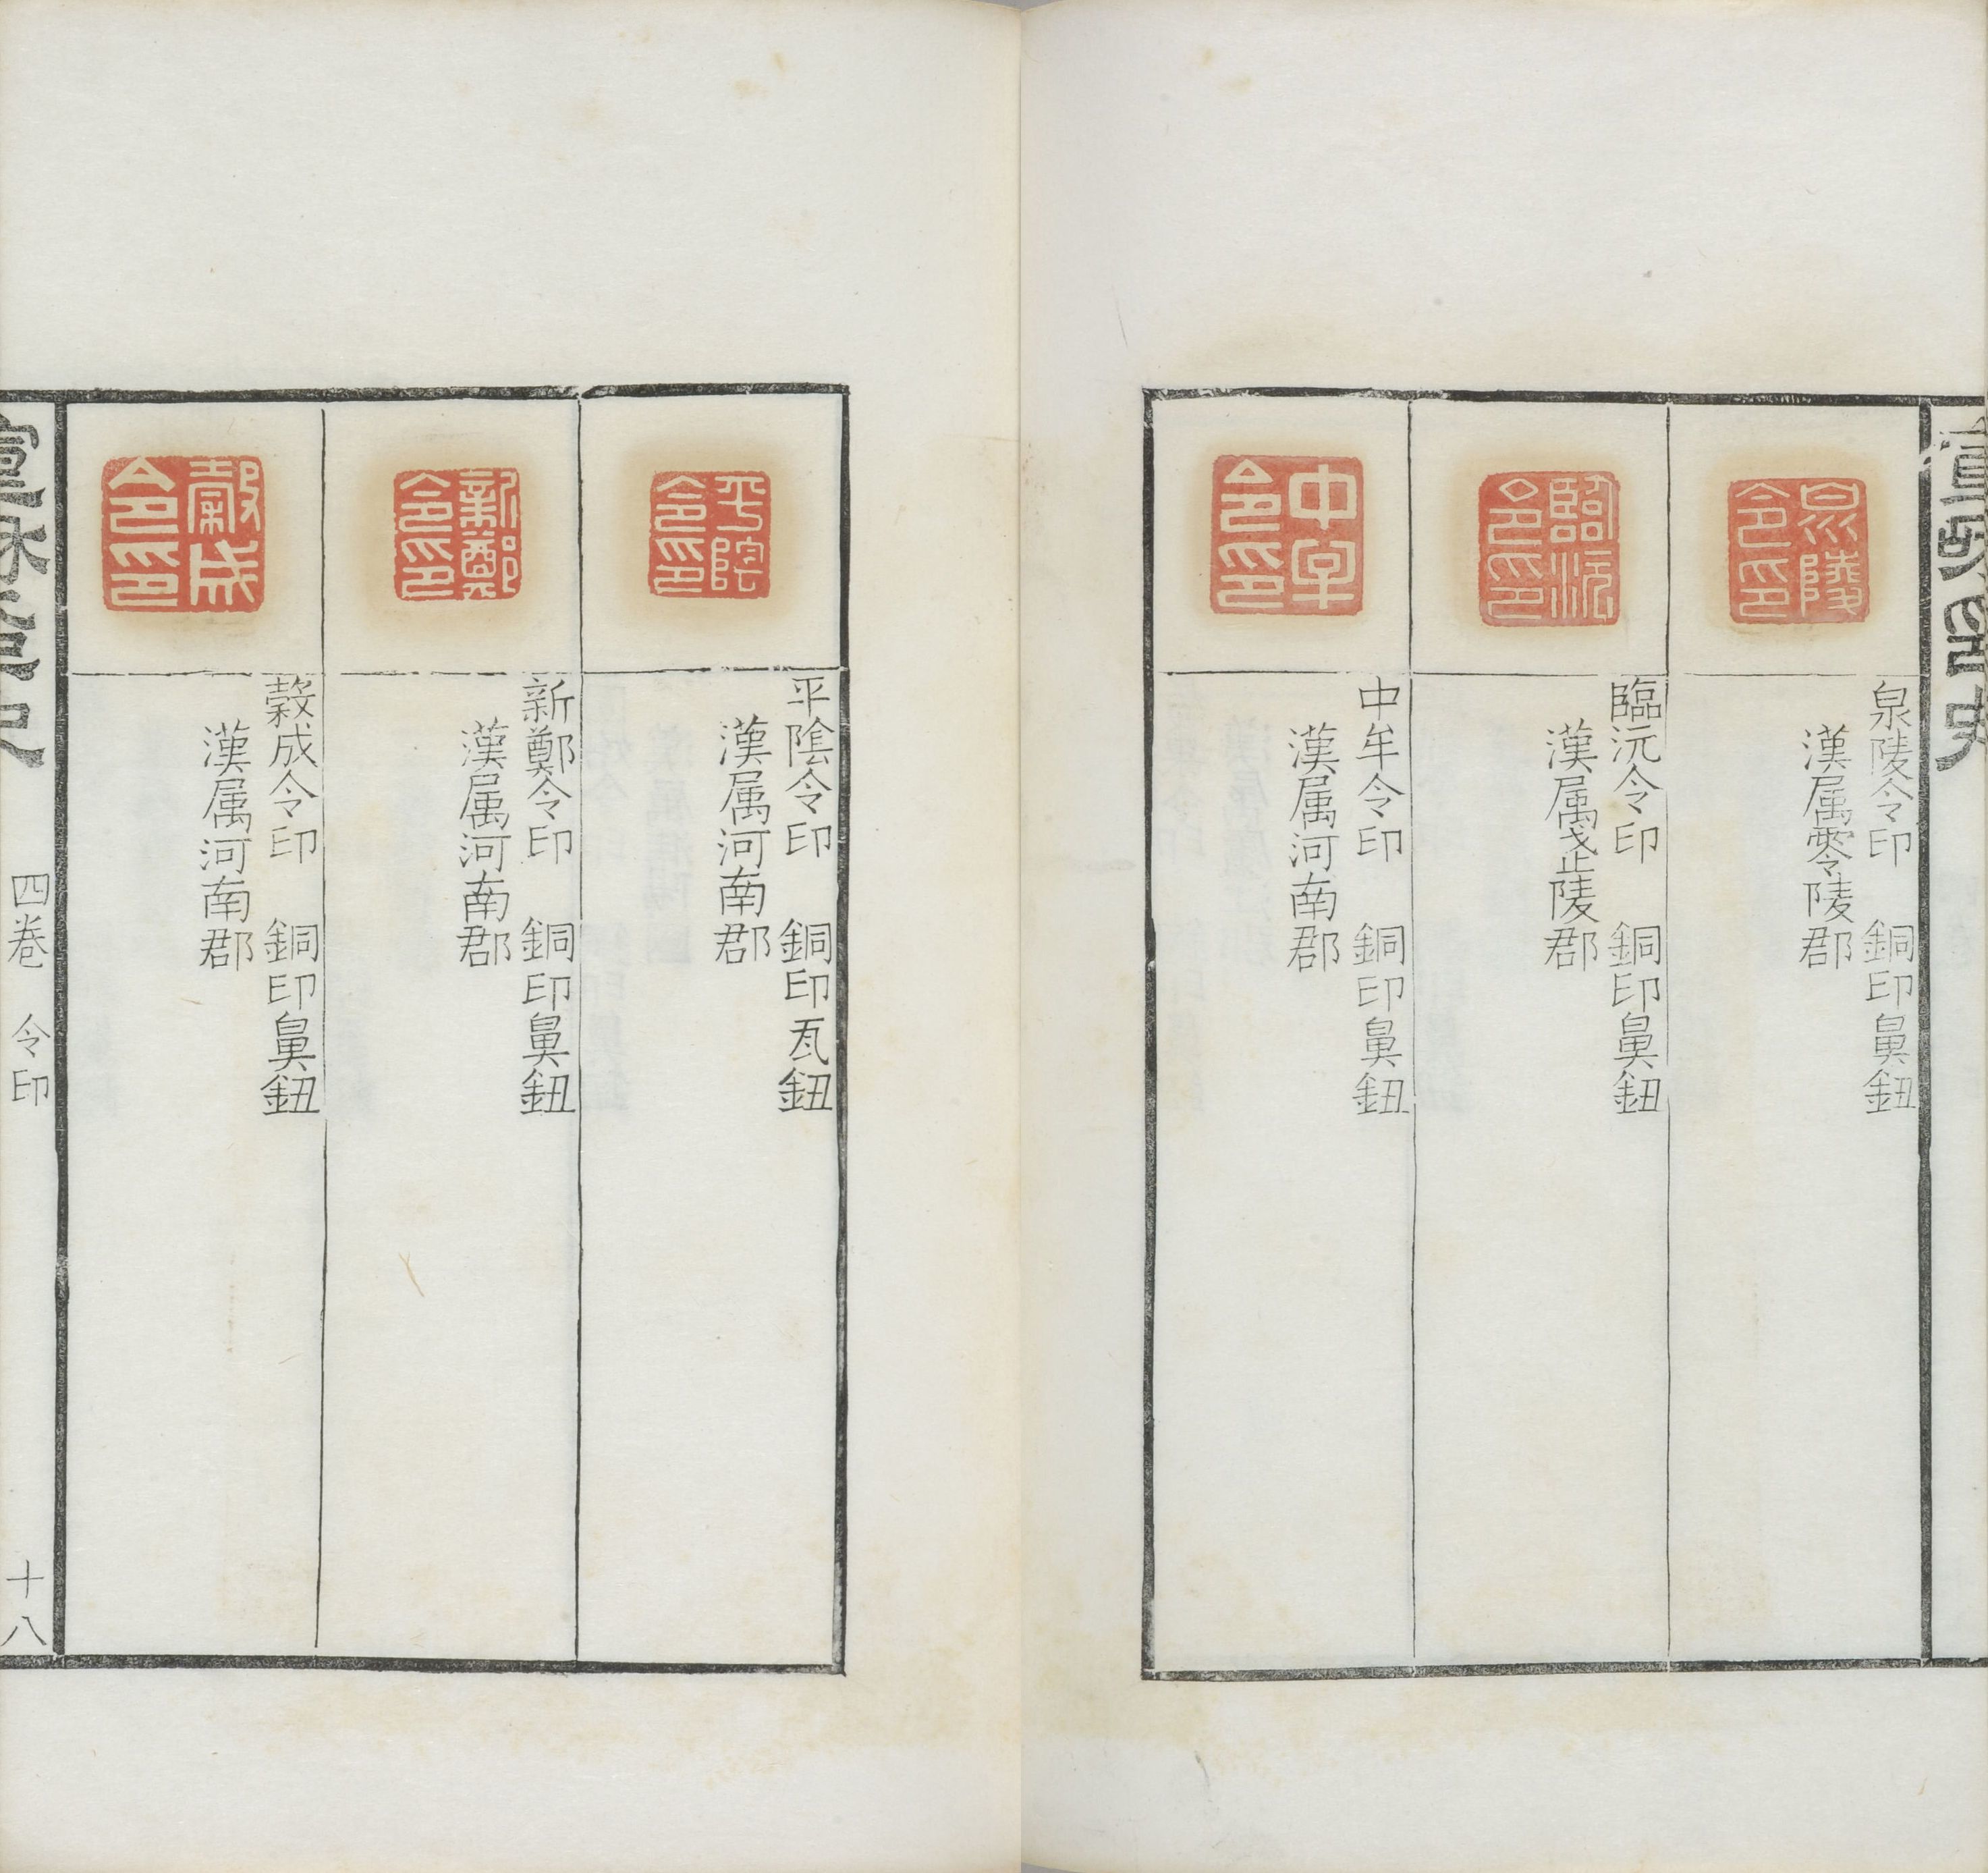 泉陵令印
泉陵令印 銅印鼻鈕
漢属零陵郡
臨沅令印
臨沅令印 銅印鼻鈕
漢属武陵郡
中牟令印
中牟令印 銅印鼻鈕
漢属河南郡
平陰令印
平陰令印 銅印瓦鈕
漢属河南郡
新鄭令印
新鄭令印 銅印鼻鈕
漢属河南郡
穀成令印
穀成令印 銅印鼻鈕
漢属河南郡
四卷 令印
十八